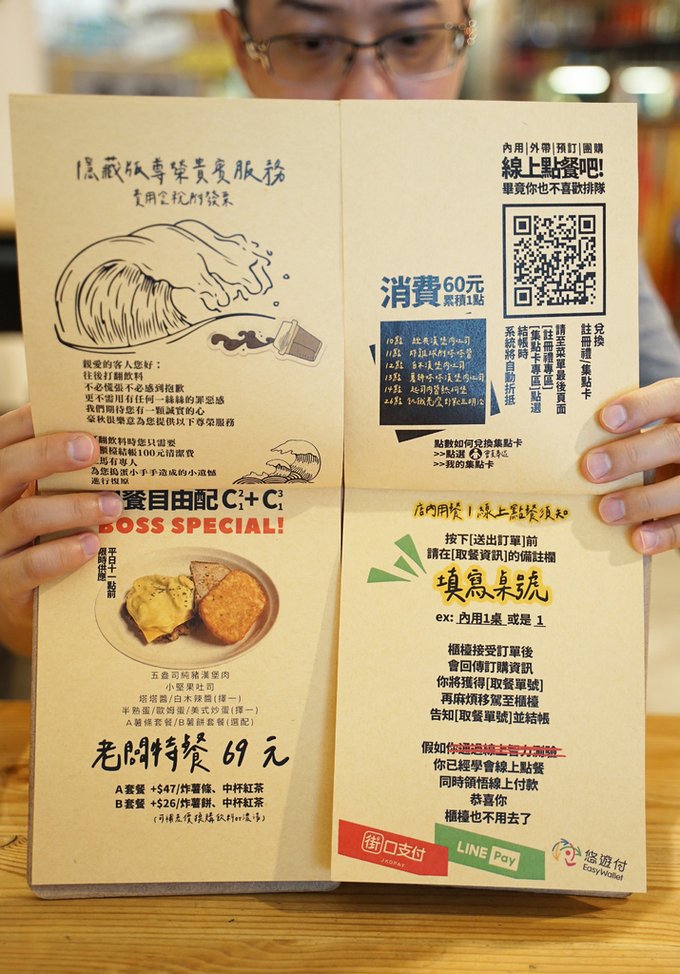 隱藏版尊榮貴賓服務
費用含稅附發票
親愛的客人您好：
往後打翻飲料
不必慌張不必感到抱歉
更不需用有任何一絲絲的罪惡感
我們期待您有一顆誠實的心
豪秋很樂意為您提供以下尊榮服務
翻飲料時您只需要
櫃檯結帳100元清潔費
馬有專人
為您搗蛋小手手造成的小遺憾
進行復原
內用|外帶|預訂|團購
線上點餐吧!
畢竟你也不喜歡排隊
消費60元
累積1點
10點
11點
12點
13點
兌換
註冊禮/集點卡
請至菜單最後頁面
[註冊禮專區]
[集點卡專區]點選
結帳時
系統將自動折抵
點數如何兌換集點卡
>>點選 會員專區
>>我的集點卡
餐自由配 C²₁+C³₁
BOSS SPECIAL!
平日十一點前
限時供應
五盎司純豬漢堡肉
小堅果吐司
塔塔醬/白木辣醬(擇一)
半熟蛋/歐姆蛋/美式炒蛋(擇一)
A薯條套餐/B薯餅套餐(選配)
老闆特餐 69 元
A 套餐 +$47/炸薯條、中杯紅茶
B 套餐 +$26/炸薯餅、中杯紅茶
店內用餐|線上點餐須知
按下[送出訂單]前
請在[取餐資訊]的備註欄
填寫桌號
ex: 內用1桌 或是 1
櫃檯接受訂單後
會回傳訂購資訊
你將獲得[取餐單號]
再麻煩移駕至櫃檯
告知[取餐單號]並結帳
假如你通過線上智力測驗
你已經學會線上點餐
同時領悟線上付款
恭喜你
櫃檯也不用去了
街口支付
JKOPAY
LINE Pay
悠遊付
EasyWallet